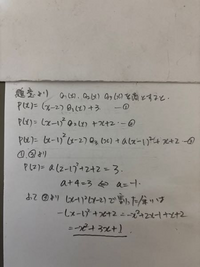 題意より Q₁(x), Q₂(x) Q₃(x)を商とすると
P(x) = (x-2) Q₁(x) + 3 ―①
P(x) = (x-1)² Q₂(x) + x+2 ―②
P(x) = (x-1)² (x-2) Q₃(x) + a(x-1)² + x+2 ―③
①, ③より
P(2) = a(2-1)² + 2+2 = 3.
a+4 = 3 ⇔ a = -1.
よって ③より (x-1)²(x-2)で割った余りは
-(x-1)² + x+2 = -x²+2x-1+x+2
= -x²+3x+1